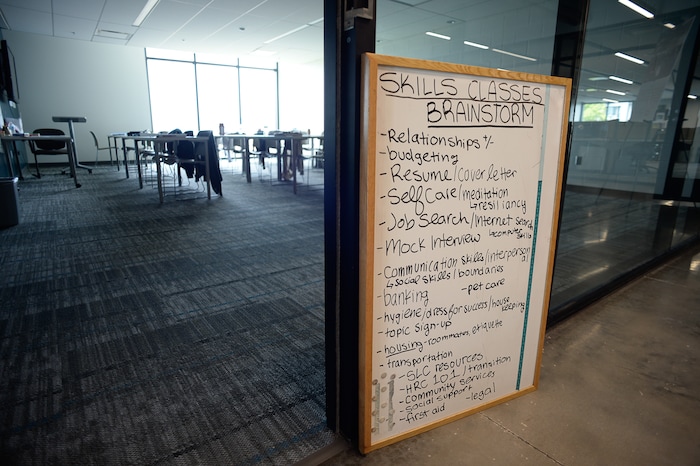 SKILLS CLASSES
BRAINSTORM
- Relationships +/-
- budgeting
- Resume/cover letter
- Self Care/meditation
↳ resiliancy
- Job Search/Internet search
↳ computer skills
- Mock Interview
- Communication skills/interpersonal
↳ social skills/boundaries
- banking - pet care
- hygiene/dress for success/house keeping
- topic sign-up
- housing - roommates, etiquette
- transportation
- SLC resources
- HRC 101/transition
- community services
- social support - legal
- first aid